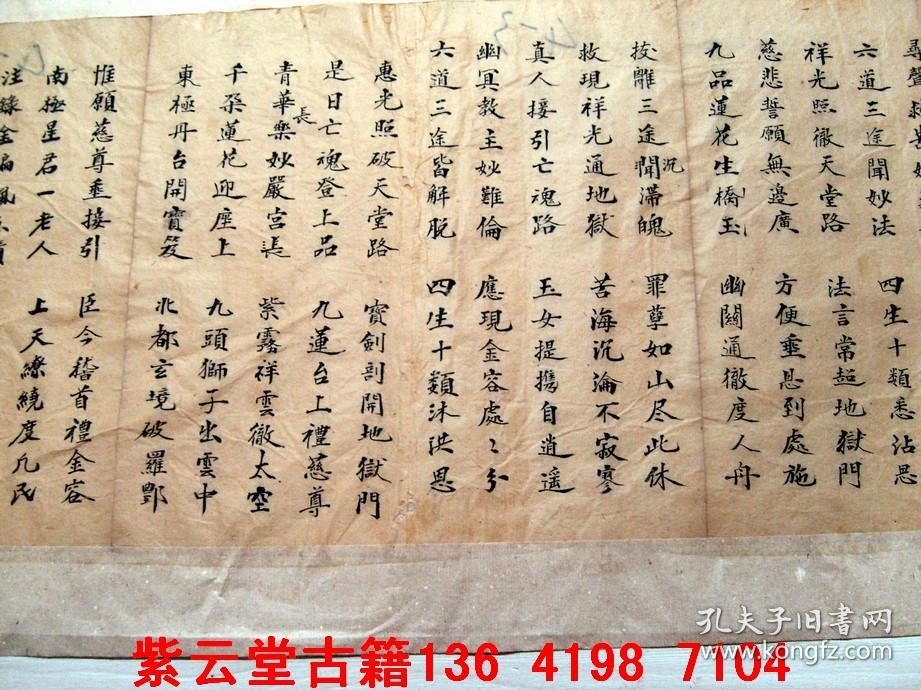 尋聲救苦
六道三途聞妙法 四生十類悉沾恩
祥光照徹天堂路 法言常超地獄門
慈悲誓願無邊廣 方便垂慈到處施
九品蓮花生橋玉 幽關通徹度人舟
拔離三途聞滯魄 罪孽如山尽此休
沉
救現祥光通地獄 苦海沉淪不寂寥
真人接引亡魂路 玉女提攜自逍遥
幽冥教主妙難倫 應現金容處〻分
六道三途皆解脱 四生十類沐洪恩
惠光照破天堂路 寶劍剖開地獄門
是日亡魂登上品 九蓮台上禮慈尊
青華樂妙嚴宮 紫霧祥雲徹太空
長
千朶蓮花迎座上 九頭獅子出雲中
東極丹台開寶笈 北都玄境破羅酆
惟願慈尊垂接引 臣今稽首禮金容
南極星君一老人 上天繚繞度凡民
注錄金
紫云堂古籍136 4198 7104
孔夫子旧書网
www.kongfz.com